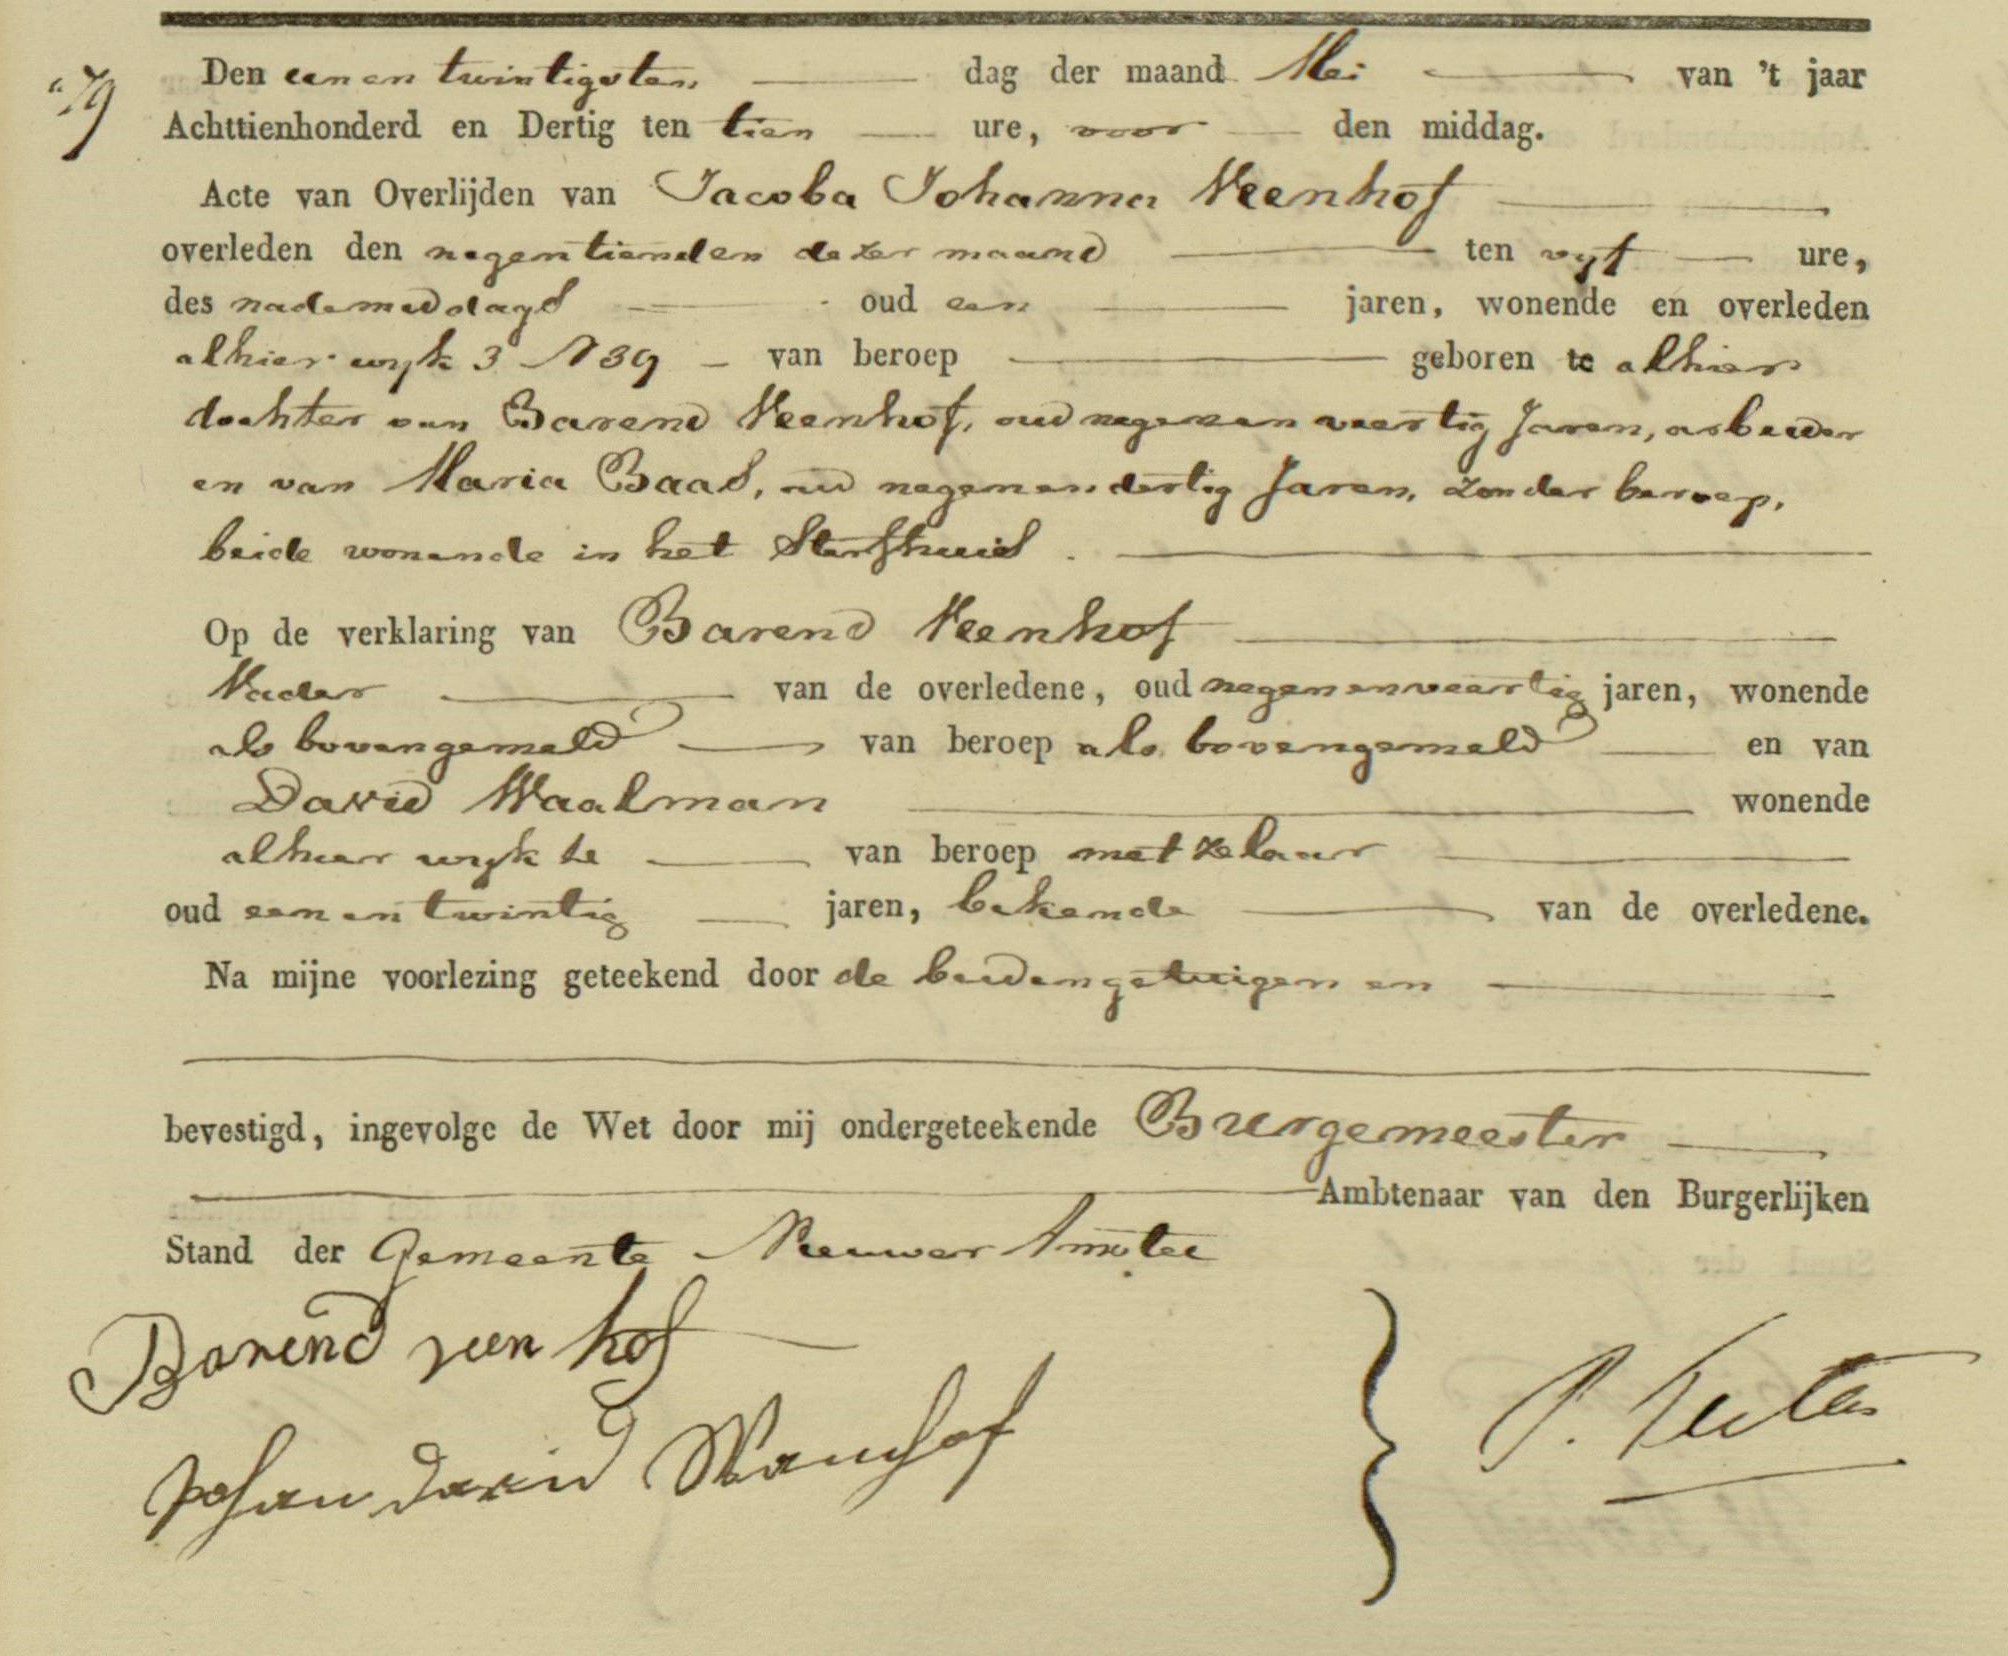 79
Den eenen twintigsten dag der maand Mei van 't jaar
Achttienhonderd en Dertig ten tien ure, voor den middag.
Acte van Overlijden van Jacoba Johanna Veenhof
overleden den negentienden dezer maand ten vyf ure,
des nademiddags oud een jaren, wonende en overleden
alhier wyk 3 N 39 van beroep geboren te alhier
dochter van Barend Veenhof, oud negenen veertig Jaren, arbeider
en van Maria Baas, oud negenendertig Jaren, zonder beroep,
beide wonende in het Sterfhuis.
Op de verklaring van Barend Veenhof
Vader van de overledene, oud negenenveertig jaren, wonende
als bovengemeld van beroep als bovengemeld en van
David Waalman wonende
alhier wyk te van beroep metzelaar
oud eenentwintig jaren, bekende van de overledene.
Na mijne voorlezing geteekend door de beidengetuigen en
bevestigd, ingevolge de Wet door mij ondergeteekende Burgemeester
Ambtenaar van den Burgerlijken
Stand der Gemeente Nieuwer Amstel
Barend veenhof
Johan David
P.